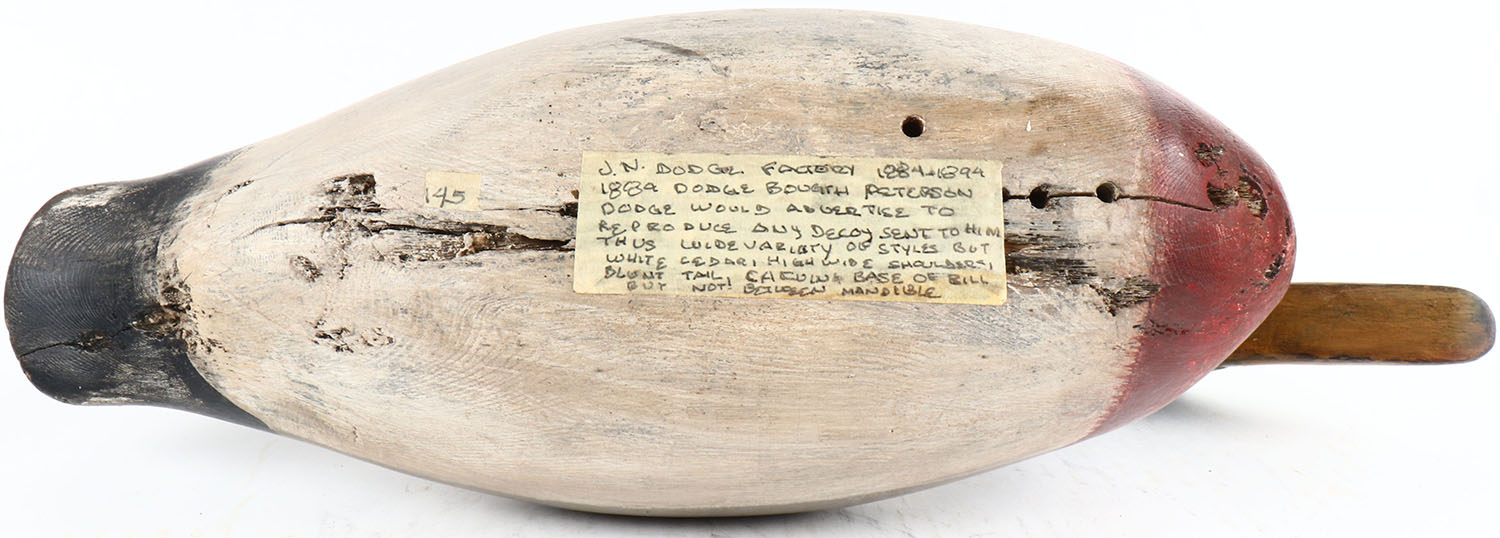 145
J.N. DODGE FACTORY 1884-1894
1884 DODGE BOUGTH PETERSON
DODGE WOULD ADVERTISE TO
REPRODUCE ANY DECOY SENT TO HIM
THUS WIDE VARIATY OF STYLES BUT
WHITE CEDAR, HIGH WIDE SHOULDERS,
BLUNT TAIL, BASE OF BILL
BUT NOT BETWEEN MANDIBLE